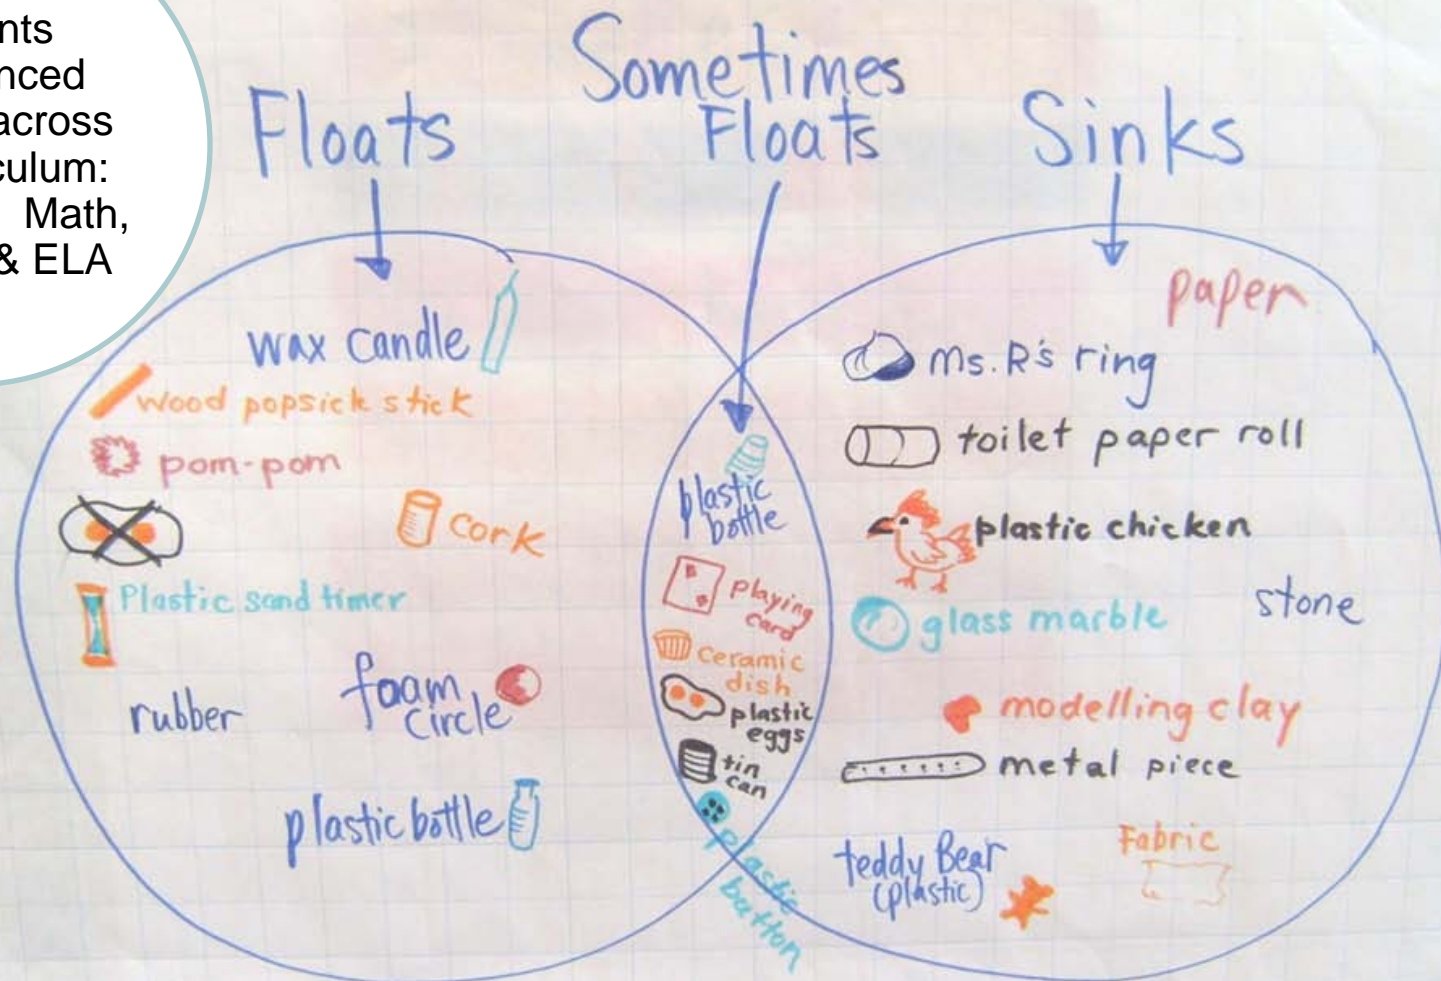 nts
nced
across
culum:
Math,
& ELA
Floats
Sometimes
Floats
Sinks
wax candle
wood popsick stick
pom-pom
cork
Plastic sand timer
rubber
foam
circle
plastic bottle
plastic
bottle
playing
card
ceramic
dish
plastic
eggs
tin
can
plastic
button
paper
Ms. R's ring
toilet paper roll
plastic chicken
glass marble
stone
modelling clay
metal piece
teddy Bear
(plastic)
Fabric